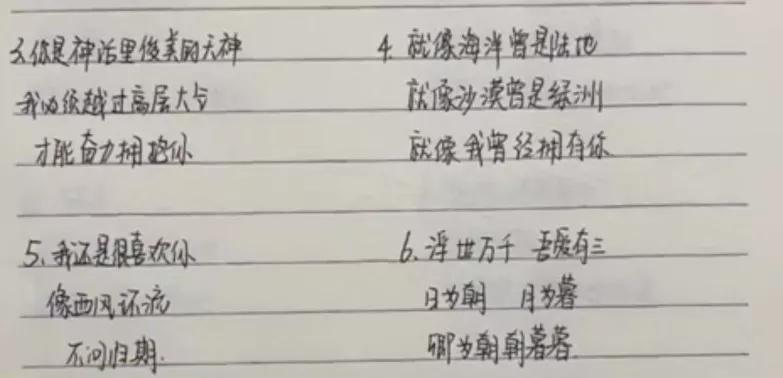 3.你是神话里俊美的天神
我必须越过高层大气
才能奋力拥抱你
4. 就像海洋曾是陆地
就像沙漠曾是绿洲
就像我曾经拥有你
5. 我还是很喜欢你
像西风环流
不问归期.
6. 浮世万千 吾爱有三
日为朝 月为暮
卿为朝朝暮暮.